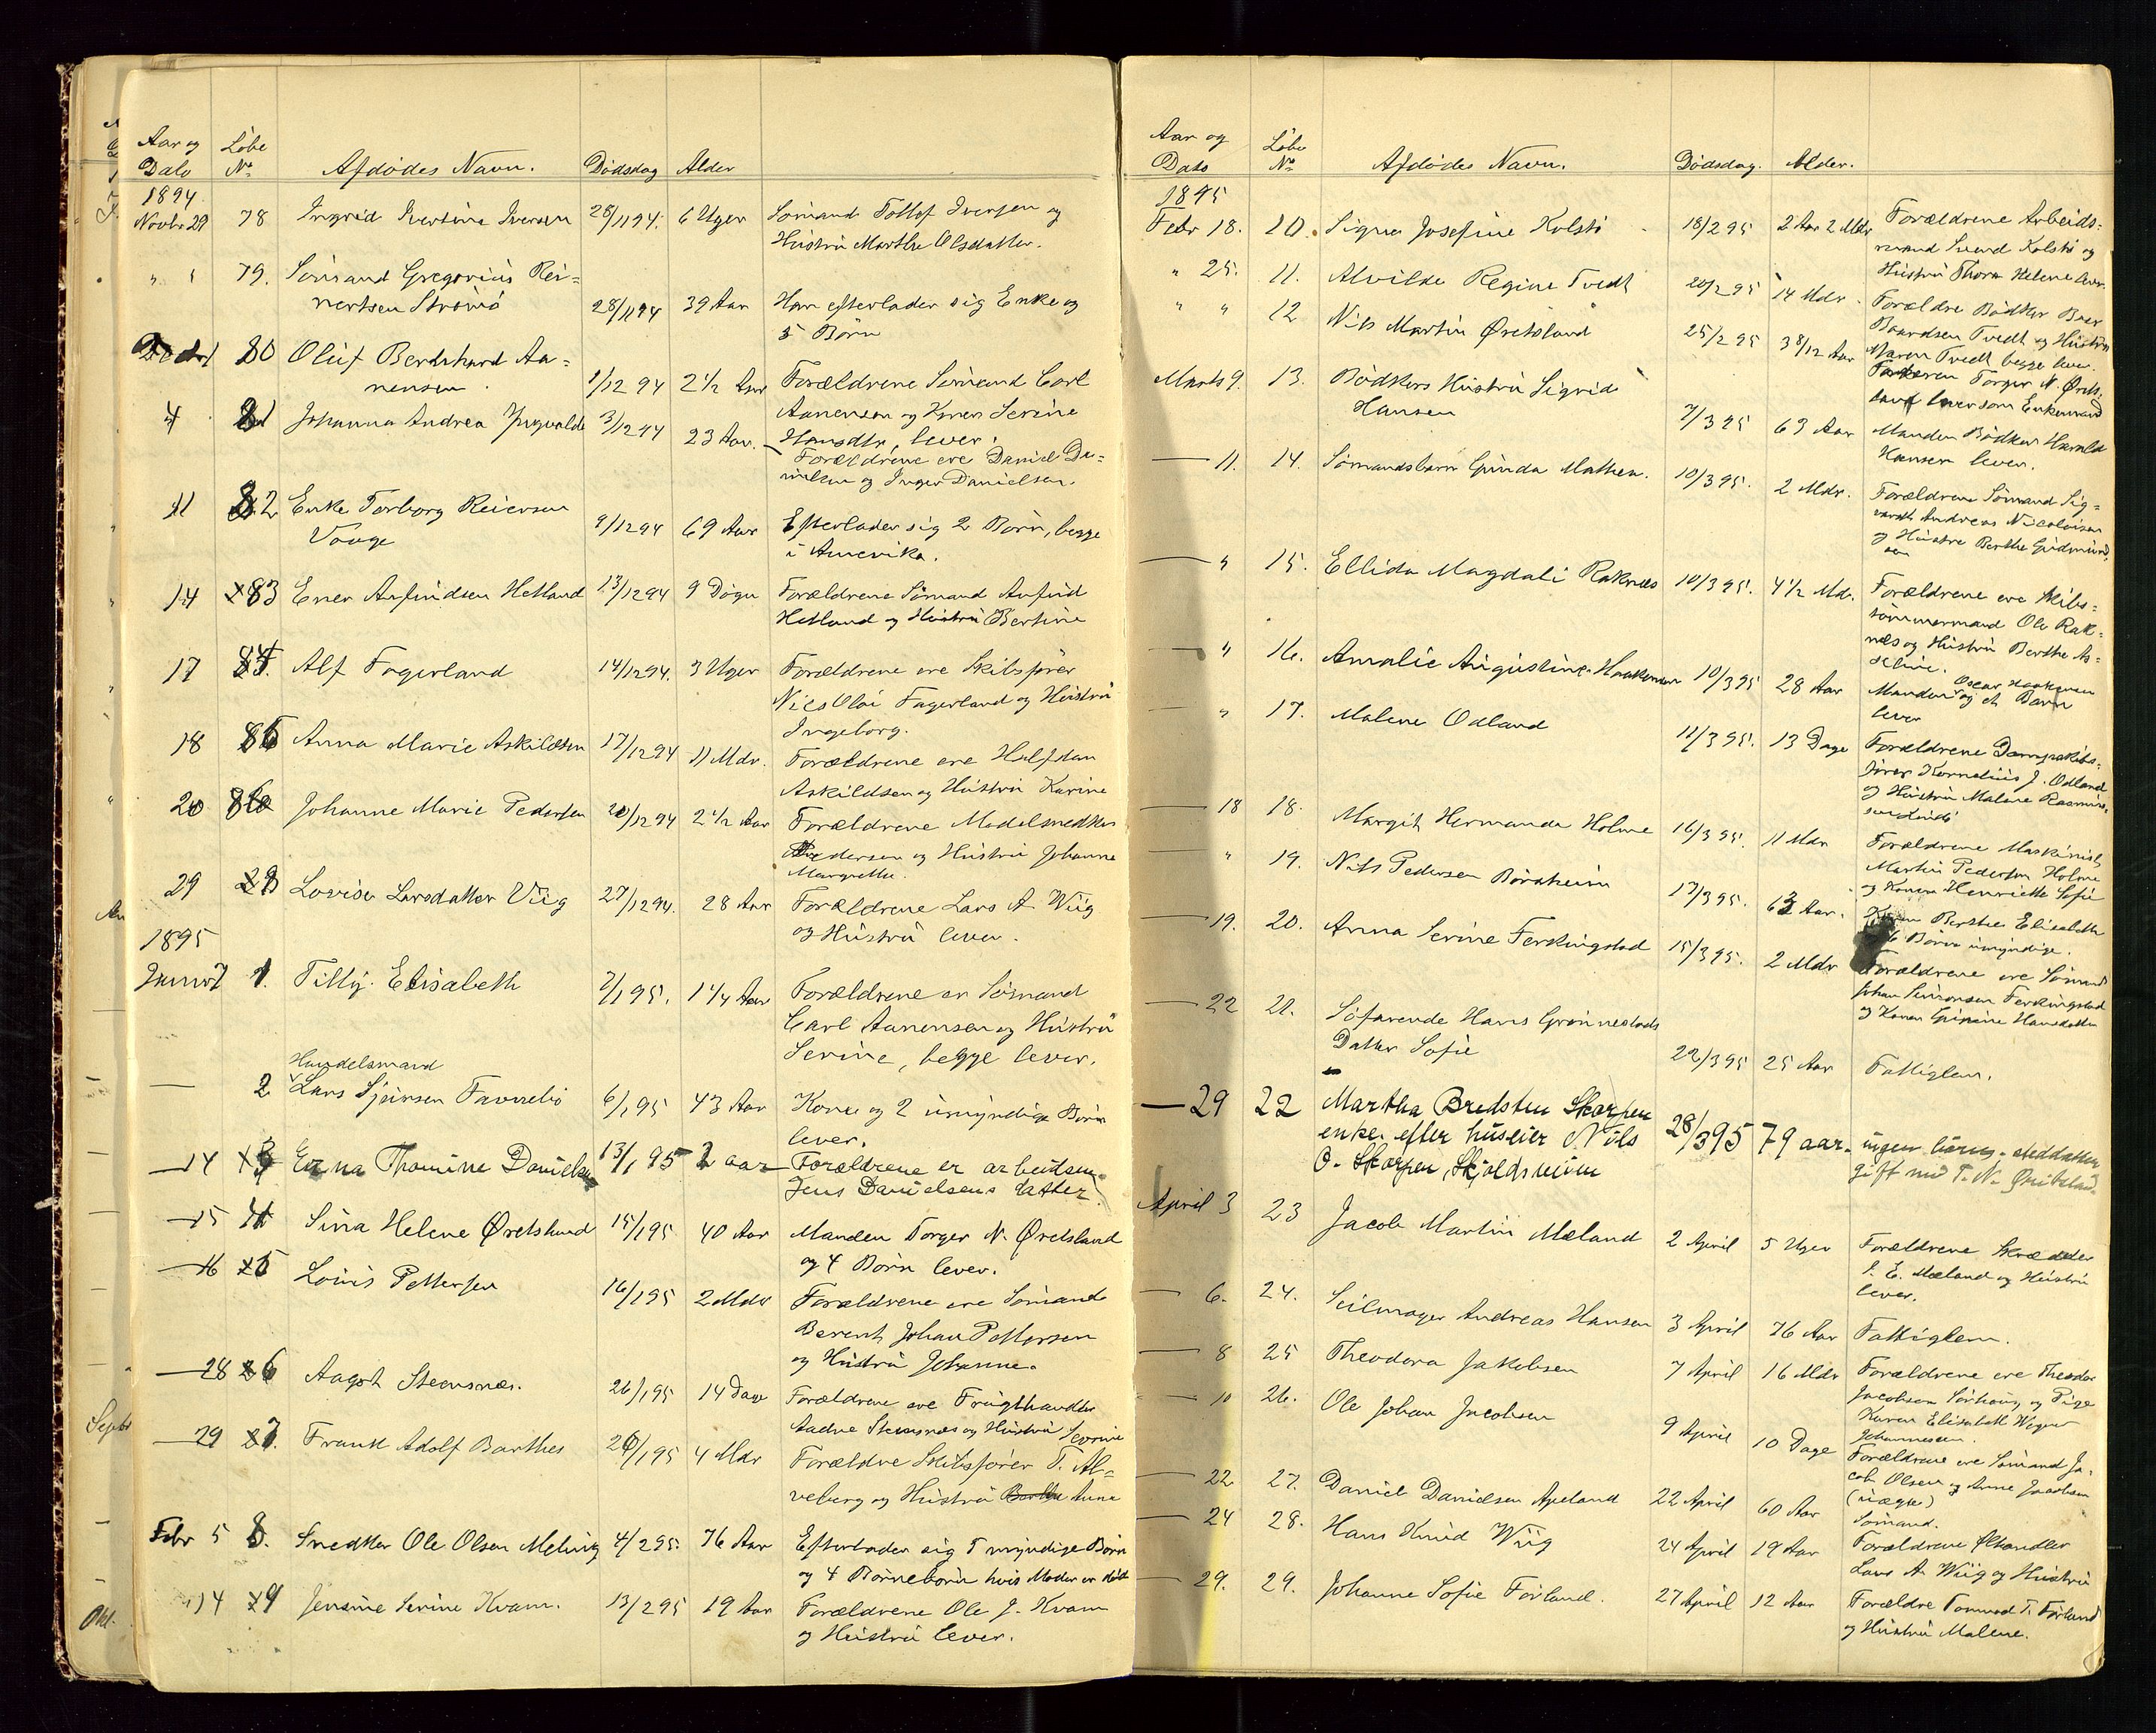 Aar og Dato Löbe No Afdödes Navn. Dödsdag Alder
1894
Novbr 29 78 Ingrid Kvertina Iversen 28/11 94. 6 Uger Sömand Tollef Iversen og
Hustrü Marthe Olsdatter.
" " 79. Sömand Gregorius Rei=
nertsen Strømø 28/11 94 39 Aar Han efterlader sig Enke og
5 Börn
Decbr 1 80 Oluf Berdshard Aa=
nensen 1/12 94 2 1/2 Aar Forældrene Sömand Carl
Aanensen og Konen Serine
Hansdtr, lever.
4 81 Johanna Andrea 3/12 94 23 Aar. Forældrene ere Daniel Da=
nielsen og Inger Danielsen.
11 82 Enke Torborg Reiersen
Vaage 9/12 94 69 Aar Efterlader sig 2 Börn, begge
i Amerika.
14 83 Ener Anfindsen Hetland 13/12 94 9 Dögn Forældrene Sömand Anfind
Hetland og Hustrü Bertine
17 84. Alf Fagerland 14/12 94. 3 Uger Forældrene ere Skibsförer
Nils Olai Fagerland og Hüstrü
Ingeborg.
18 85 Anna Marie Askildsen 17/12 94 11 Mdr. Forældrene ere Halfdan
Askildsen og Hüstrü Karine
20 86 Johanne Marie Pedersen 20/12 94 2 1/2 Aar Forældrene Modelsnedker
Pedersen og Hüstrü Johanne
Margrethe.
29 Lovise Larsdatter Viig 27/12 94. 28 Aar Forældrene Lars A. Wiig
og Hüstrü lever.
1895
Januar 7 1. Tilly Elisabeth 7/1 95. 1 1/4 Aar Forældrene er Sömand
Carl Aanensen og Hüstrü
Serine, begge lever.
Handelsmand
2 Lars Sjursen Favnelio 6/1 95 43 Aar Kone og 2 ümyndige Börn
lever.
14 3 Erna Thomine Danielsen 13/1 95 2 aar Forældrene er arbeidsm.
Jens Danielsens datter.
15 4 Sina Helene Øretsland 15/1 95 40 Aar Manden Torger N. Øretsland
og 4 Börn lever.
16 5 Loüis Pettersen 16/1 95 2 Mdr Forældrene ere Sömand
Berent Johan Pettersen
og Hüstrü Johanne.
28 6 Aagot Steensnæs. 26/1 95 14 Dage Forældrene ere Frügthandler
Aadne Steensnæs og Hüstrü Severine
29 7. Frank Adolf Barthes 26/1 95 4 Mdr Forældre Skibsförer T. Al=
veberg og Hüstrü Berthe Anna
Febr 5 8. Snedker Ole Olsen Meling 4/2 95. 76 Aar Efterlader sig 5 myndige Börn
og 4 Börneborn hvis Moder er död
14 9 Jensine Serine Kvam. 13/2 95 19 Aar Forældrene Ole J. Kvam
og Hüstrü lever.
Aar og Dato Löbe No Afdödes Navn. Dödsdag. Alder.
1895
Febr 18. 10. Signe Josefine Kolstö 18/2 95 2 Aar 2 Mdr Forældrene Arbeids=
mand Svend Kolstö og
Hüstrü Thora Helene lever.
" 25. 11. Alvilde Regine Tvedt 20/2 95 14 Mdr. Forældre Bödker Baar
Baardsen Tvedt og Hüstrü
Maren Tvedt begge lever.
" " 12 Nils Martin Øretsland 25/2 95 3 8/12 Aar Faderen Torger N. Örets=
land lever som Enkemand
Marts 9. 13. Bödkers Hüstrü Sigrid
Hansen 7/3 95 63 Aar Manden Bödker Harald
Hansen lever.
11. 14. Sömandsbarn Gunda Mathea. 10/3 95. 2 Mdr. Forældrene Sömand Sig=
vardt Andreas Nicolaisen
og Hüstrü Berthe Gudmünd
sen
" 15. Ellida Magdali Raknæs 10/3 95. 4 1/2 Md. Forældrene ere Skibs=
tömmermand Ole Rak=
næs og Hüstrü Berthe As=
seline.
" 16. Amalie Augustine Haakensen 10/3 95 28 Aar Manden Oscar Haakensen og et Barn
lever
" 17. Malene Odland 11/3 95. 13 Dage Forældrene Dampskibs=
förer Kornelius J. Odland
og Hüstrü Malene
18 18. Margit Hermanda Holme 16/3 95. 11 Mdr Forældrene Maskinist
Martin Pedersen Holme
og Konen Henriette Sofie
" 19. Nils Pedersen Böraheim 17/3 95. 63 Aar. Berthe Elisabeth
6 Börn ümyndige.
19. 20. Anna Serine Ferkingstad 15/3 95. 2 Mdr Forældrene ere Sömand
Johan Simonsen Ferkingstad
og Konen Hansdatter
22 21. Söfarende Hans Grönnestads
Datter Sofie 22/3 95 25 Aar Fattiglem.
29 22 Martha Bredsten Skorpen
enke efter huseier Nils
O. Skorpen, Skjoldsmüm 28/3 95 79 aar. ingen börn. steddatter
gift med T. N.
April 3 23 Jacob Martin Mæland 2 April 5 Uger Forældrene Skrædder
S. E. Mæland og Hüstrü
lever.
6. 24. Seilmager Andreas Hansen 3 April 76 Aar Fattiglem.
8 25 Theodora Jakobsen 7 April 16 Mdr Forældrene ere Theodor
Jacobsen Sörhaug og Pige
Karen Elisabeth Wegner
Johannessen.
10 26. Ole Johan Jacobsen 9 April 10 Dage Forældrene ere Sömand Ja=
cob Olsen og Anne Jacobsen
(uægte)
22 27. Daniel Danielsen Apeland 22 April 60 Aar Sömand.
24 28. Hans Knüd Wiig 24 April 19 Aar Forældrene Ølhandler
Lars A. Wiig og Hüstrü
29. 29. Johanne Sofie Förland. 27 April 12 Aar Forældre Tormod T. Förland
og Hüstrü Malene.
Septbr
Okt.